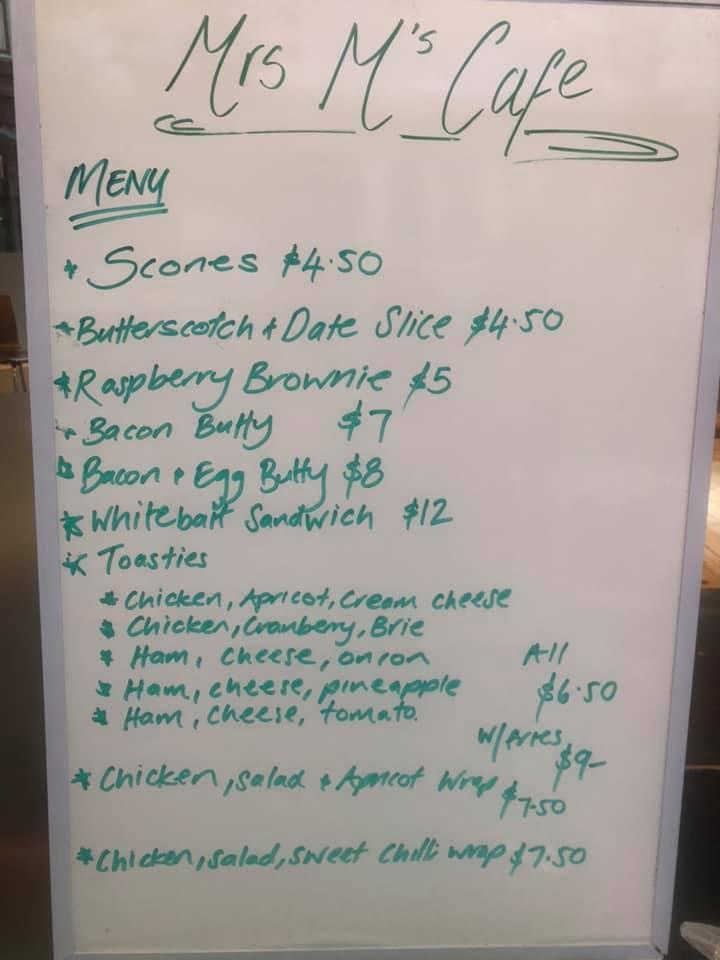 Mrs M's Cafe
MENU
* Scones $4.50
* Butterscotch + Date Slice $4.50
* Raspberry Brownie $5
* Bacon Butty $7
* Bacon + Egg Butty $8
* Whitebait Sandwich $12
* Toasties
* Chicken, Apricot, Cream cheese
* Chicken, Cranberry, Brie
* Ham, cheese, onion
* Ham, cheese, pineapple
* Ham, cheese, tomato.
All
$6.50
W/Fries
$9-
* Chicken, salad + Apricot Wrap $7.50
* Chicken, salad, sweet chilli wrap $7.50